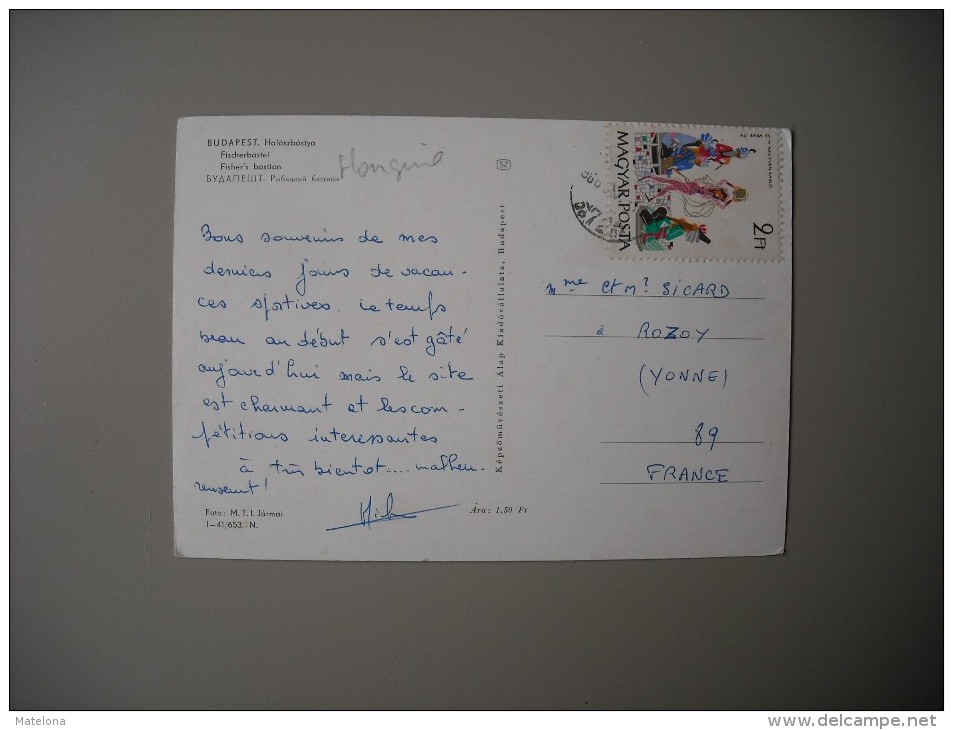 BUDAPEST. Halászbástya
Fischerbastei
Fisher's bastion
БУДАПЕШТ. Рыбацкий бастион
Hongrie
52
Bons souvenirs de mes
derniers jours de vacan-
ces sportives. Le temps
beau au début s'est gâté
aujourd'hui mais le site
est charmant et les com-
pétitions interessantes
à très bientot.... malheu-
reusement!
Foto: M. T. I. Jármai
I—41/653.-N.
Ára: 1,50 Ft
Képzőművészeti Alap Kiadóvállalata, Budapest
MAGYAR POSTA
2Ft
ALI BABA ÉS
A NEGYVEN RABLÓ
Mme et Mr SICARD
à ROZOY
(YONNE)
89
FRANCE
Matelona
www.delcampe.net